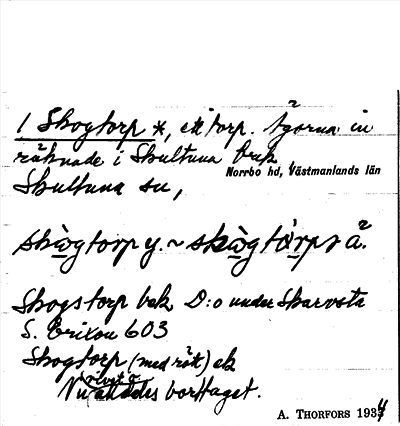 1 Skogtorp *, ett torp. Ägorna in
räknade i Skultuna bruk
Norrbo hd, Västmanlands län
Skultuna sn,
skògtorp y. ~ skògtòrp, ä.
Skogstorp bek D:o under Skarvsta
S. Erixon 603
Skogtorp (med rätt) ek
Nu alldeles borttaget.
A. THORFORS 1934